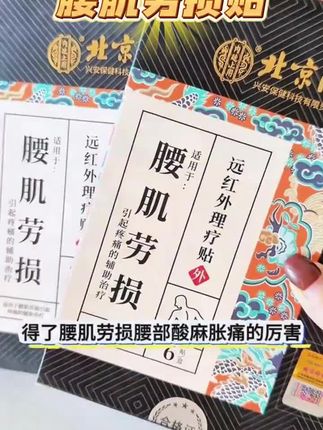 腰肌劳损贴
北京
兴安保健科技有限
北京
兴安保健科技有限
远红外理疗贴
外
适用于：
腰肌劳损
引起疼痛的辅助治疗
适用于：
腰肌劳损
引起疼痛的辅助治疗
6贴
得了腰肌劳损腰部酸麻胀痛的厉害
合格证